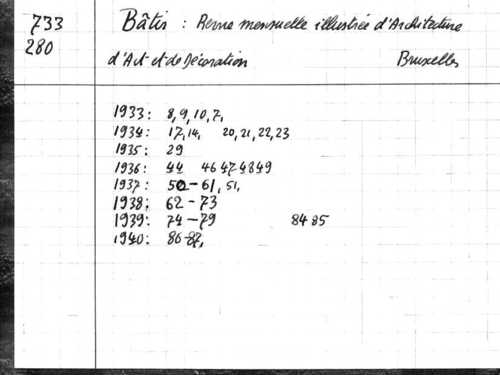 733 Bâtir : Revue mensuelle illustrée d'Architecture
280 d'Art et de Décoration Bruxelles
1933: 8, 9, 10, 7,
1934: 17, 14, 20, 21, 22, 23
1935: 29
1936: 44 46 47 48 49
1937: 50-61, 51,
1938: 62-73
1939: 74-79 84 85
1940: 86-87,